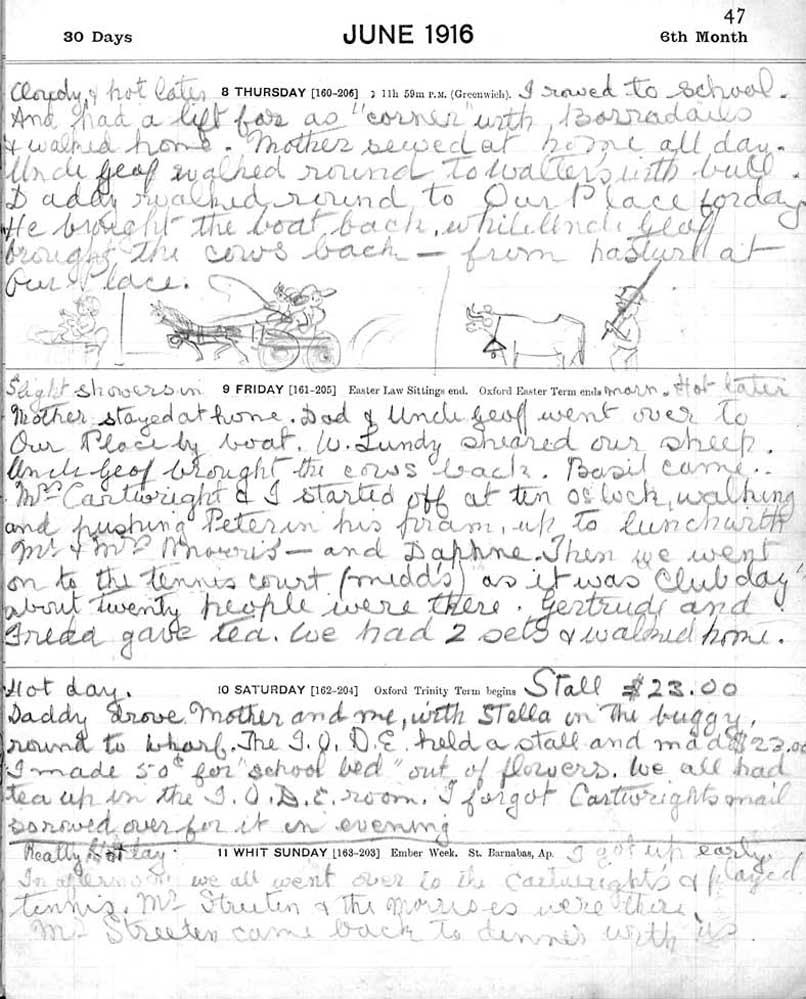 47
30 Days JUNE 1916 6th Month
Cloudy & hot later 8 THURSDAY [160-206] ☽ 11h 59m P.M. (Greenwich). I rowed to school.
And had a lift far as "corner" with Borradailes
& walked home. Mother sewed at home all day.
Uncle Geof walked round to Walter's with bull.
Daddy walked round to Our Place for day
He brought the boat back, while Uncle Geof
brought the cows back — from pasture at
Our Place.
Slight showers in 9 FRIDAY [161-205] Easter Law Sittings end. Oxford Easter Term ends morn. Hot later
Mother stayed at home. Dad & Uncle Geof went over to
Our Place by boat. W. Lundy sheared our sheep.
Uncle Geof brought the cows back. Basil came..
Mrs Cartwright & I started off at ten o'clock, walking
and pushing Peter in his pram, up to lunch with
Mr & Mrs Morris — and Daphne. Then we went
on to the tennis court (midd's) as it was Club day
about twenty people were there. Gertrude and
Freda gave tea. We had 2 sets & walked home.
Hot day. 10 SATURDAY [162-204] Oxford Trinity Term begins Stall $23.00
Daddy drove Mother and me, with Stella in the buggy,
round to wharf. The I.O.D.E. held a stall and made $23.00
I made 50¢ for "school bed" out of flowers. We all had
tea up in the I.O.D.E. room. I forgot Cartwrights mail
so rowed over for it in evening
Really Hot day. 11 WHIT SUNDAY [163-203] Ember Week. St. Barnabas, Ap. I got up early.
In afternoon we all went over to the Cartwright's & played
tennis. Mr Streeten & the Morrises were there.
Mr Streeten came back to dinner with us.